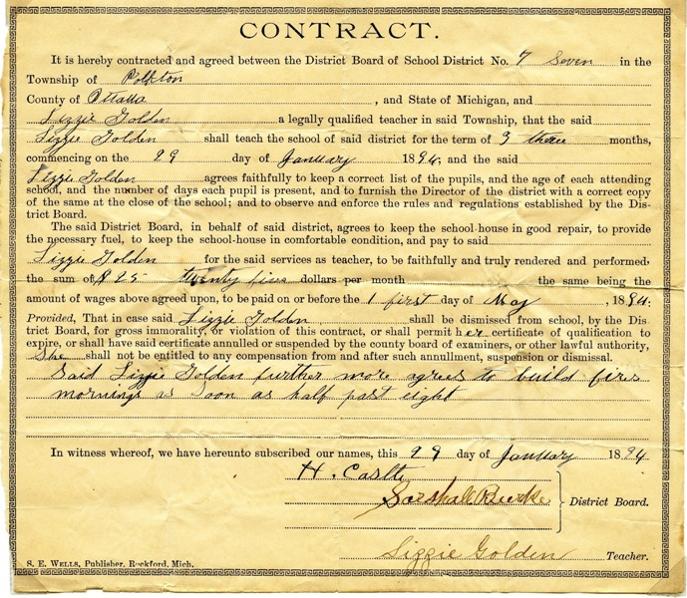 CONTRACT.
It is hereby contracted and agreed between the District Board of School District No. 7 Seven in the
Township of Polkton
County of Ottawa , and State of Michigan, and
Lizzie Golden a legally qualified teacher in said Township, that the said
Lizzie Golden shall teach the school of said district for the term of 3 three months,
commencing on the 29 day of January 1894; and the said
Lizzie Golden agrees faithfully to keep a correct list of the pupils, and the age of each attending
school, and the number of days each pupil is present, and to furnish the Director of the district with a correct copy
of the same at the close of the school; and to observe and enforce the rules and regulations established by the Dis-
trict Board.
The said District Board, in behalf of said district, agrees to keep the school-house in good repair, to provide
the necessary fuel, to keep the school-house in comfortable condition, and pay to said
Lizzie Golden for the said services as teacher, to be faithfully and truly rendered and performed,
the sum of $ 25 twenty five dollars per month the same being the
amount of wages above agreed upon, to be paid on or before the 1 first day of May , 1894:
Provided, That in case said Lizzie Golden shall be dismissed from school, by the Dis-
trict Board, for gross immorality, or violation of this contract, or shall permit her certificate of qualification to
expire, or shall have said certificate annulled or suspended by the county board of examiners, or other lawful authority,
She shall not be entitled to any compensation from and after such annullment, suspension or dismissal.
Said Lizzie Golden further more agrees to build fires
mornings as soon as half past eight
In witness whereof, we have hereunto subscribed our names, this 29 day of January 1894
H.
District Board.
Lizzie Golden Teacher.
S. E. WELLS, Publisher, Rockford, Mich.